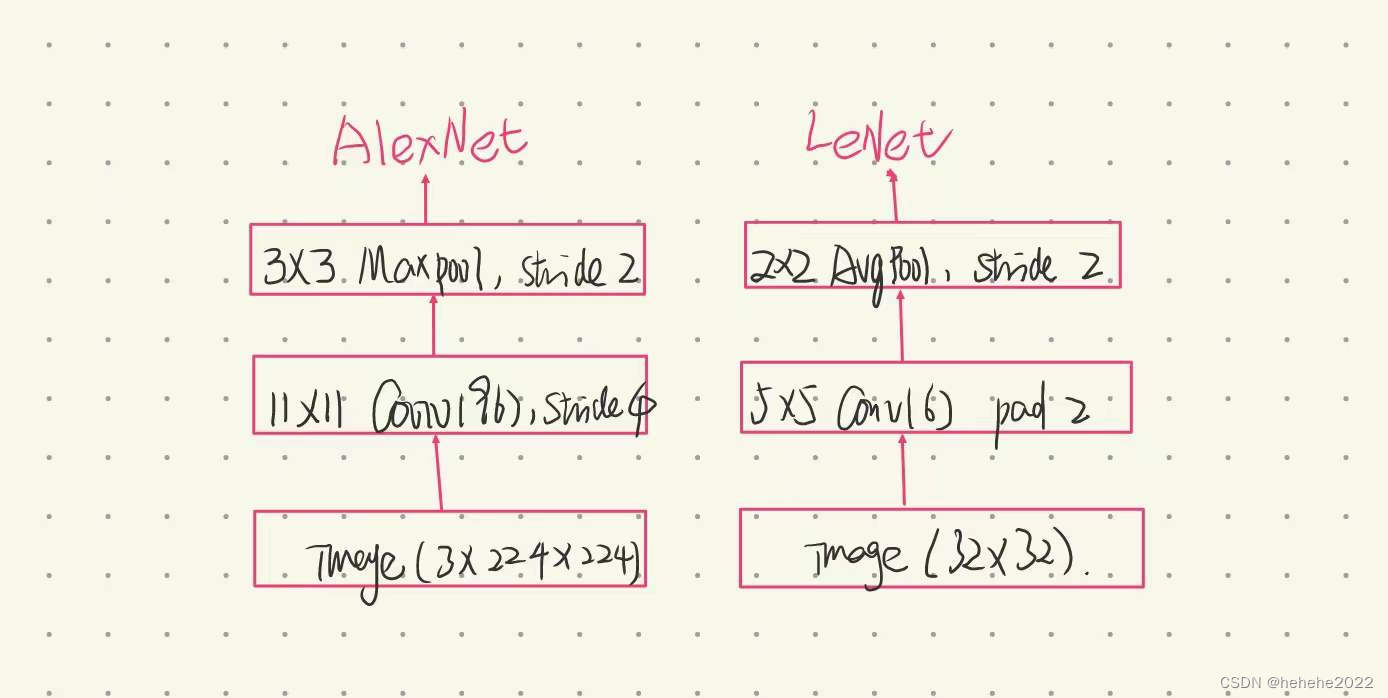 AlexNet
3X3 Maxpool, stride 2
11X11 Conv(96), stride 4
Image (3X224X224)
LeNet
2X2 AvgPool, stride 2
5X5 Conv(6) pad 2
Image (32X32).
CSDN @hehehe2022